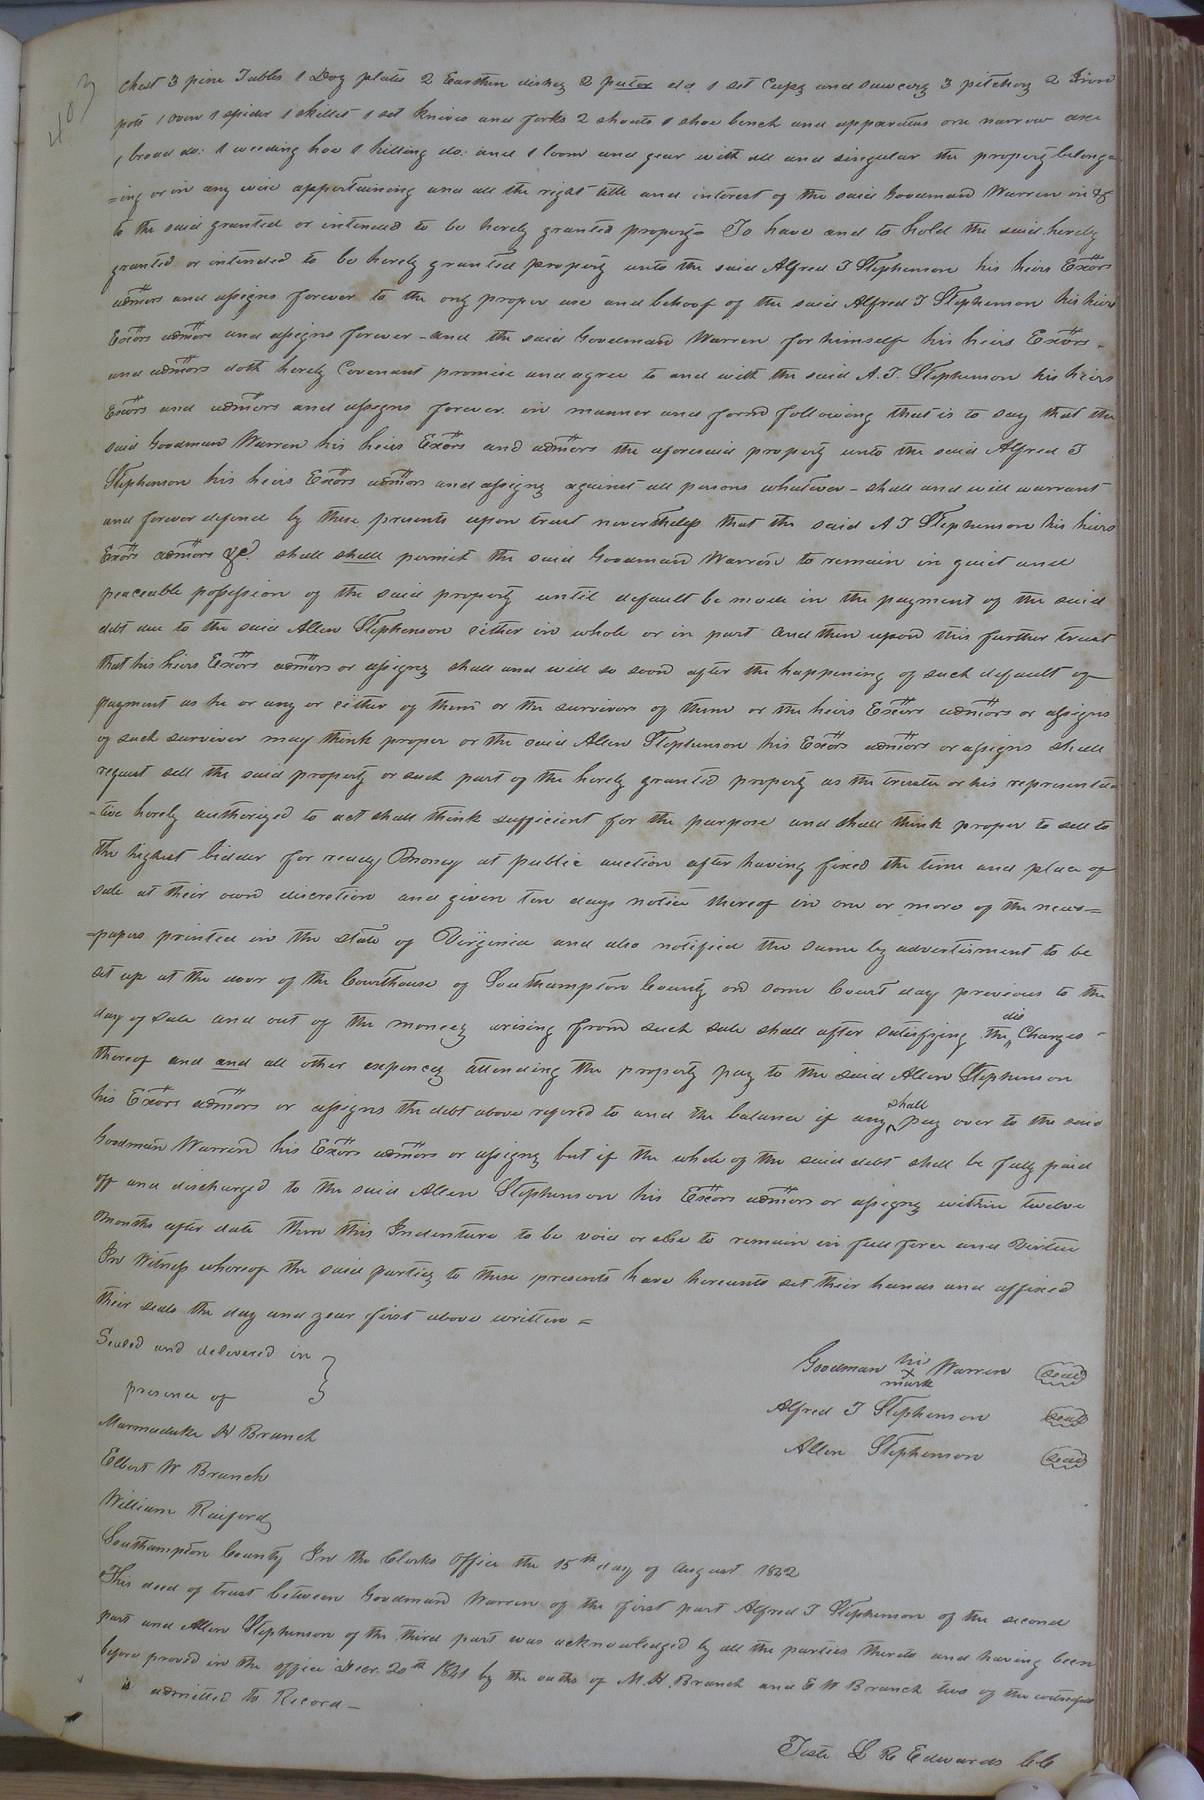 403
Chest 3 pine Tables 1 Doz plates 2 Earthen dishes 2 puter do. 1 set Cups and saucers 3 pitchers 2 Iron
pots 1 oven 1 spider 1 skillet 1 set knives and forks 2 shoats 1 shoe bench and apparatus one narrow axe
1 broad do: 1 weeding hoe 1 hilling do: and 1 loom and gear with all and singular the property belong=
=ing or in any wise appertaining and all the right title and interest of the said Goodman Warren in &
to the said granted or intended to be hereby granted property To have and to hold the said hereby
granted or intended to be hereby granted property unto the said Alfred J Stephenson his heirs Exors
admors and assigns forever to the only proper use and behoof of the said Alfred J Stephenson his heirs
Exors admors and assigns forever - and the said Goodman Warren for himself his heirs Exors -
and admors doth hereby Covenant promise and agree to and with the said A. J. Stephenson his heirs
Exors and admors and assigns forever in manner and form following that is to say that the
said Goodman Warren his heirs Exors and admors the aforesaid property unto the said Alfred J
Stephenson his heirs Exors admors and assigns against all persons whatever - shall and will warrant
and forever defend by these presents upon trust nevertheless that the said A J Stephenson his heirs
Exors admors &c. shall shall permit the said Goodman Warren to remain in quiet and
peaceable possession of the said property until default be made in the payment of the said
debt due to the said Allen Stephenson either in whole or in part and then upon this further trust
that his heirs Exors admors or assigns shall and will so soon after the happening of such default of
payment as he or any or either of them or the survivors of them or the heirs Exors admors or assigns
of such survivor may think proper or the said Allen Stephenson his Exors admors or assigns shall
request sell the said property or such part of the hereby granted property as the trustee or his representa
-tive hereby authorized to act shall think sufficient for the purpose and shall think proper to sell to
the highest bidder for ready Money at public auction after having fixed the time and place of
sale at their own discretion and given ten days notice thereof in one or more of the news=
=papers printed in the state of Virginia and also notified the same by advertisment to be
set up at the door of the Courthouse of Southampton County on some Court day previous to the
day of sale and out of the moneys arising from such sale shall after satisfying the Charges -
thereof and and all other expences attending the property pay to the said Allen Stephenson
his Exors admors or assigns the debt above refered to and the balance if any shall pay over to the said
Goodman Warren his Exors admors or assigns but if the whole of the said debt shall be fully paid
off and discharged to the said Allen Stephenson his Exors admors or assigns within twelve
Months after date then this Indenture to be void or else to remain in full force and Virtue
In Witness whereof the said parties to these presents have hereunto set their hands and affixed
their seals the day and year first above written =
Sealed and delivered in
presence of
Goodman his X mark Warren seal
Alfred J Stephenson seal
Allen Stephenson seal
Marmaduke N Branch
Elbert W Branch
William Raiford
Southampton County In the Clerks Office the 15th day of August 1842
This deed of trust between Goodman Warren of the first part Alfred J Stephenson of the second
part and Allen Stephenson of the third part was acknowledged by all the parties thereto and having been
before proved in the office Decr. 20th 1841 by the oaths of M. N. Branch and E W Branch two of the witnesses
is admitted to Record -
Teste L R Edwards CC